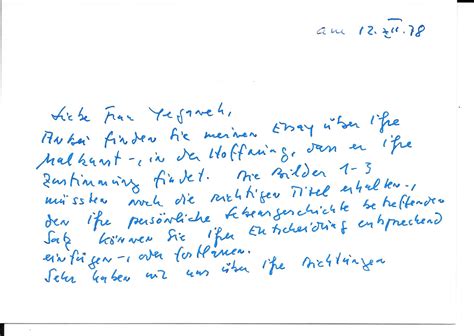 am 12. XII. 78
Liebe Frau Yeganeh,
Anbei finden Sie meinen Essay über Ihre
Malkunst -, in der Hoffnung, dass er Ihre
Zustimmung findet. Die Bilder 1-3
müssten noch die richtigen Titel erhalten -,
den Ihre persönliche Lebensgeschichte betreffenden
Satz können Sie Ihrer Entscheidung entsprechend
einfügen -, oder fortlassen.
Sehr haben wir uns über Ihre